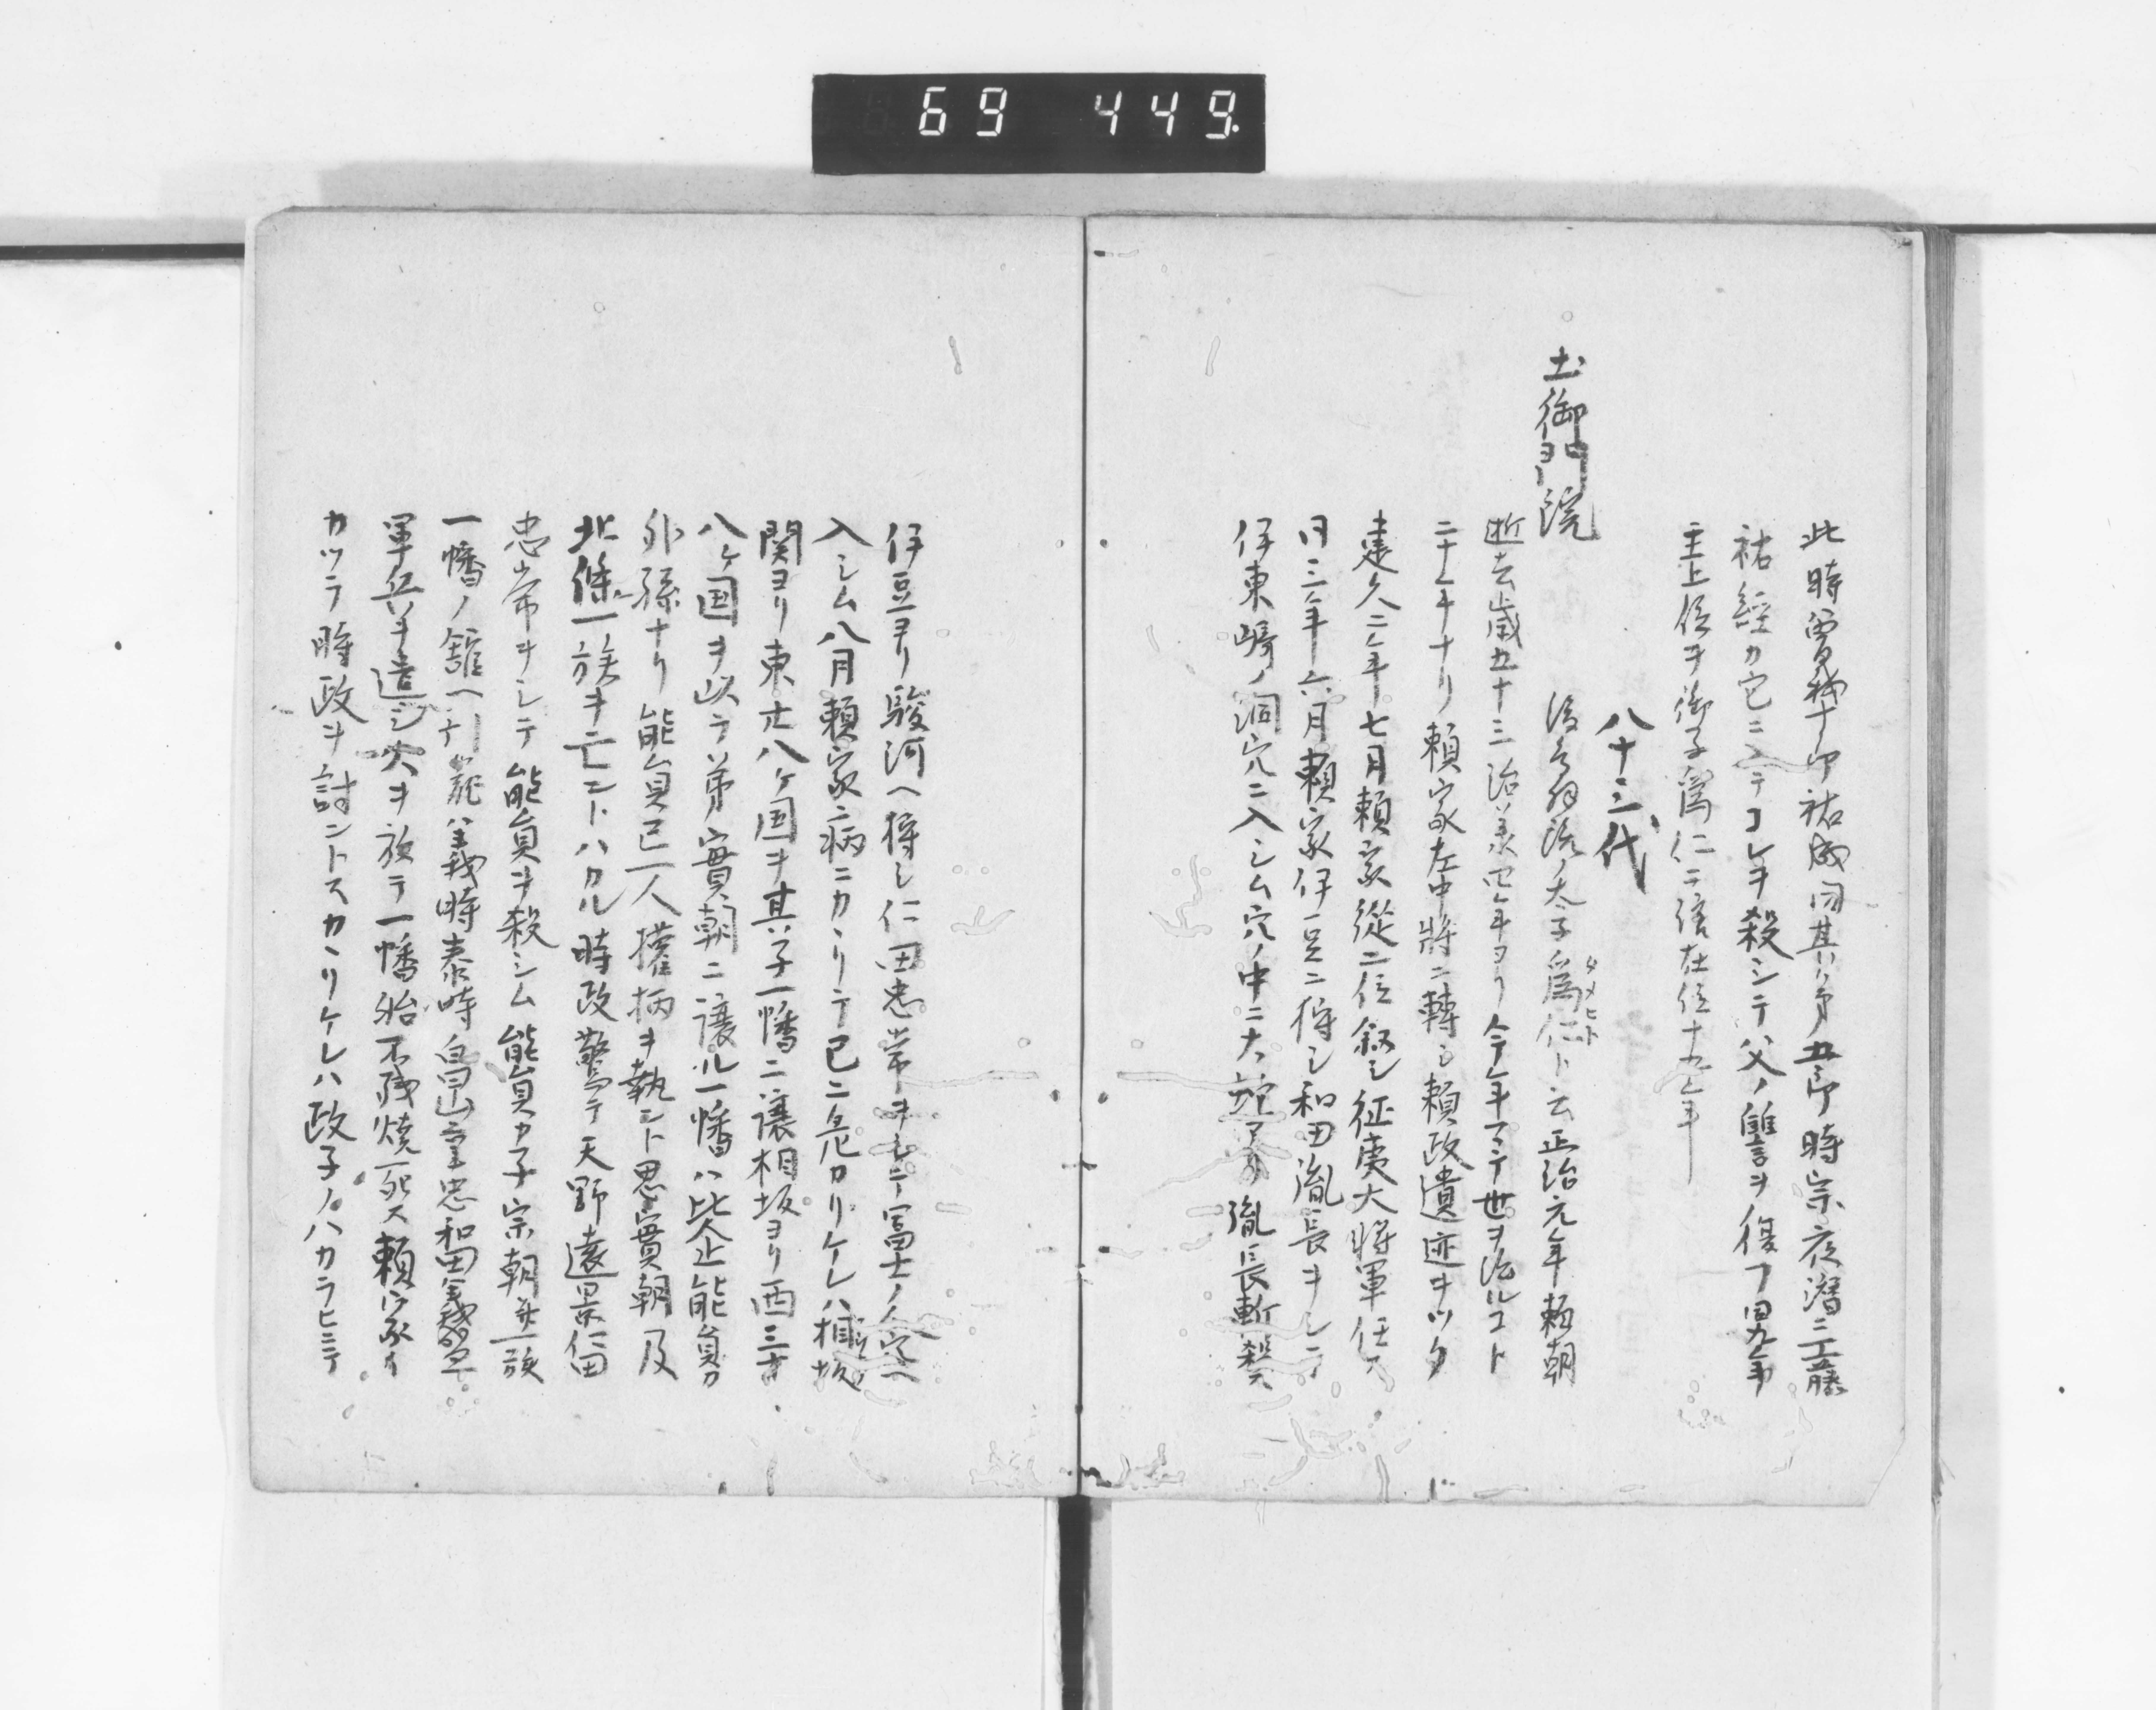 69 449.
此時曽我十郎祐成同其弟五郎時宗夜潜ニ工藤
祐經カ宅ニ入テコレヲ殺シテ父ノ讐ヲ復ス同九年
主上位ヲ御子為仁ニ譲在位十五年
八十三代
土御門院
後鳥羽院ノ太子為仁ト云正治元年頼朝
タメヒト
逝去歳五十三治承四年ヨリ今年マテ世ヲ治ルコト
二十年ナリ頼家左中將ニ轉シ頼政遺迹ヲツク
建久二年七月頼家從二位叙シ征夷大將軍任ス
同三年六月頼家伊豆ニ狩シ和田胤長ヲシテ
伊東嶋ノ洞穴ニ入シム穴ノ中ニ大蛇アリ胤長斬殺ス
伊豆ヨリ駿河ヘ狩シ仁田忠常ヲシテ冨士ノ人穴ヘ
入シム八月頼家病ニカヽリテ已ニ危カリケレハ相坂
関ヨリ東廿八ケ国ヲ其子一幡ニ譲相坂ヨリ西三十
八ケ国ヲ以テ弟實朝ニ譲ル一幡ハ比企能員カ
外孫ナリ能員已一人權柄ヲ執ント思實朝及
北條一族ヲ亡ントハカル時政驚テ天野遠景仁田
忠常ヲシテ能員ヲ殺シム能員カ子宗朝并一族
一幡ノ舘ヘ引籠ハ義時泰時畠山重忠和田義盛
軍兵ヲ遣シ火ヲ放テ一幡舩不残焼死ス頼家イ
カツテ時政ヲ討ントスカヽリケレハ政子ノハカラヒニテ